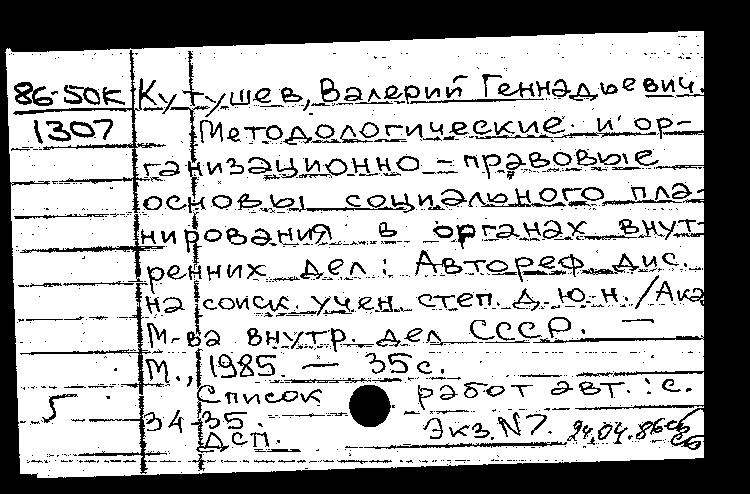 86-50К Кутушев, Валерий Геннадьевич.
1307 Методологические и ор-
ганизационно-правовые
основы социального пла-
нирования в органах внут-
ренних дел: Автореф. дис.
на соиск. учен. степ. д.ю.н./Ака
М-ва внутр. дел СССР. —
М., 1985. — 35с.
Список работ авт.: с.
5 34-35.
ДСП. Экз.N7. 24.04.86